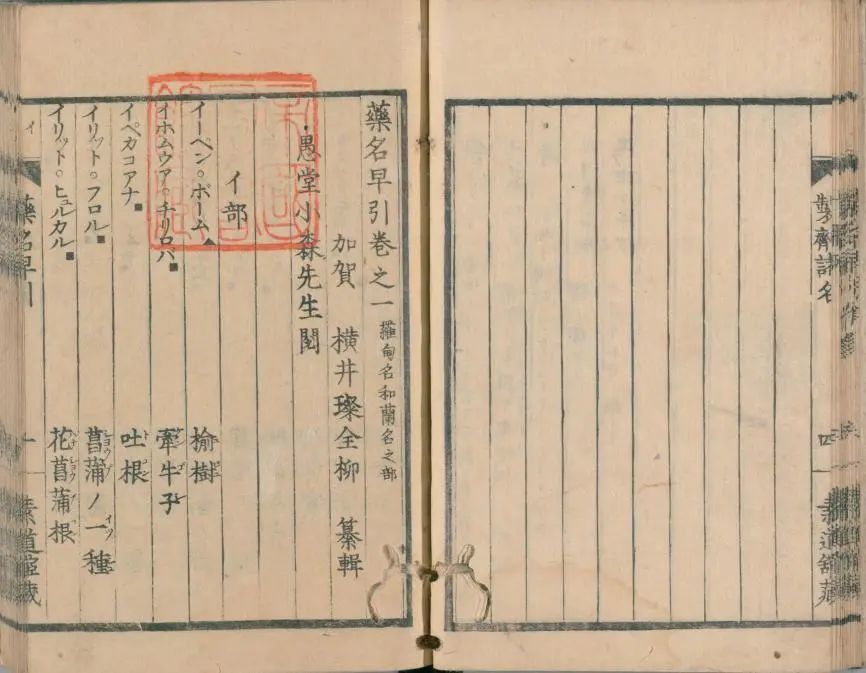 製齊諸名
四
藥名早引卷之一 羅甸名和蘭名之部
加賀 横井璨全柳 纂輯
愚堂小森先生閲
イ部
イーペン。ボーム▲ 楡樹
イホムウア。チリロバ■ 牽牛子
イペカコアナ■ 吐根
イリット。フロル■ 菖蒲ノ一種
イリット。ヒュルカル■ 花菖蒲根
イ
藥名早引
一